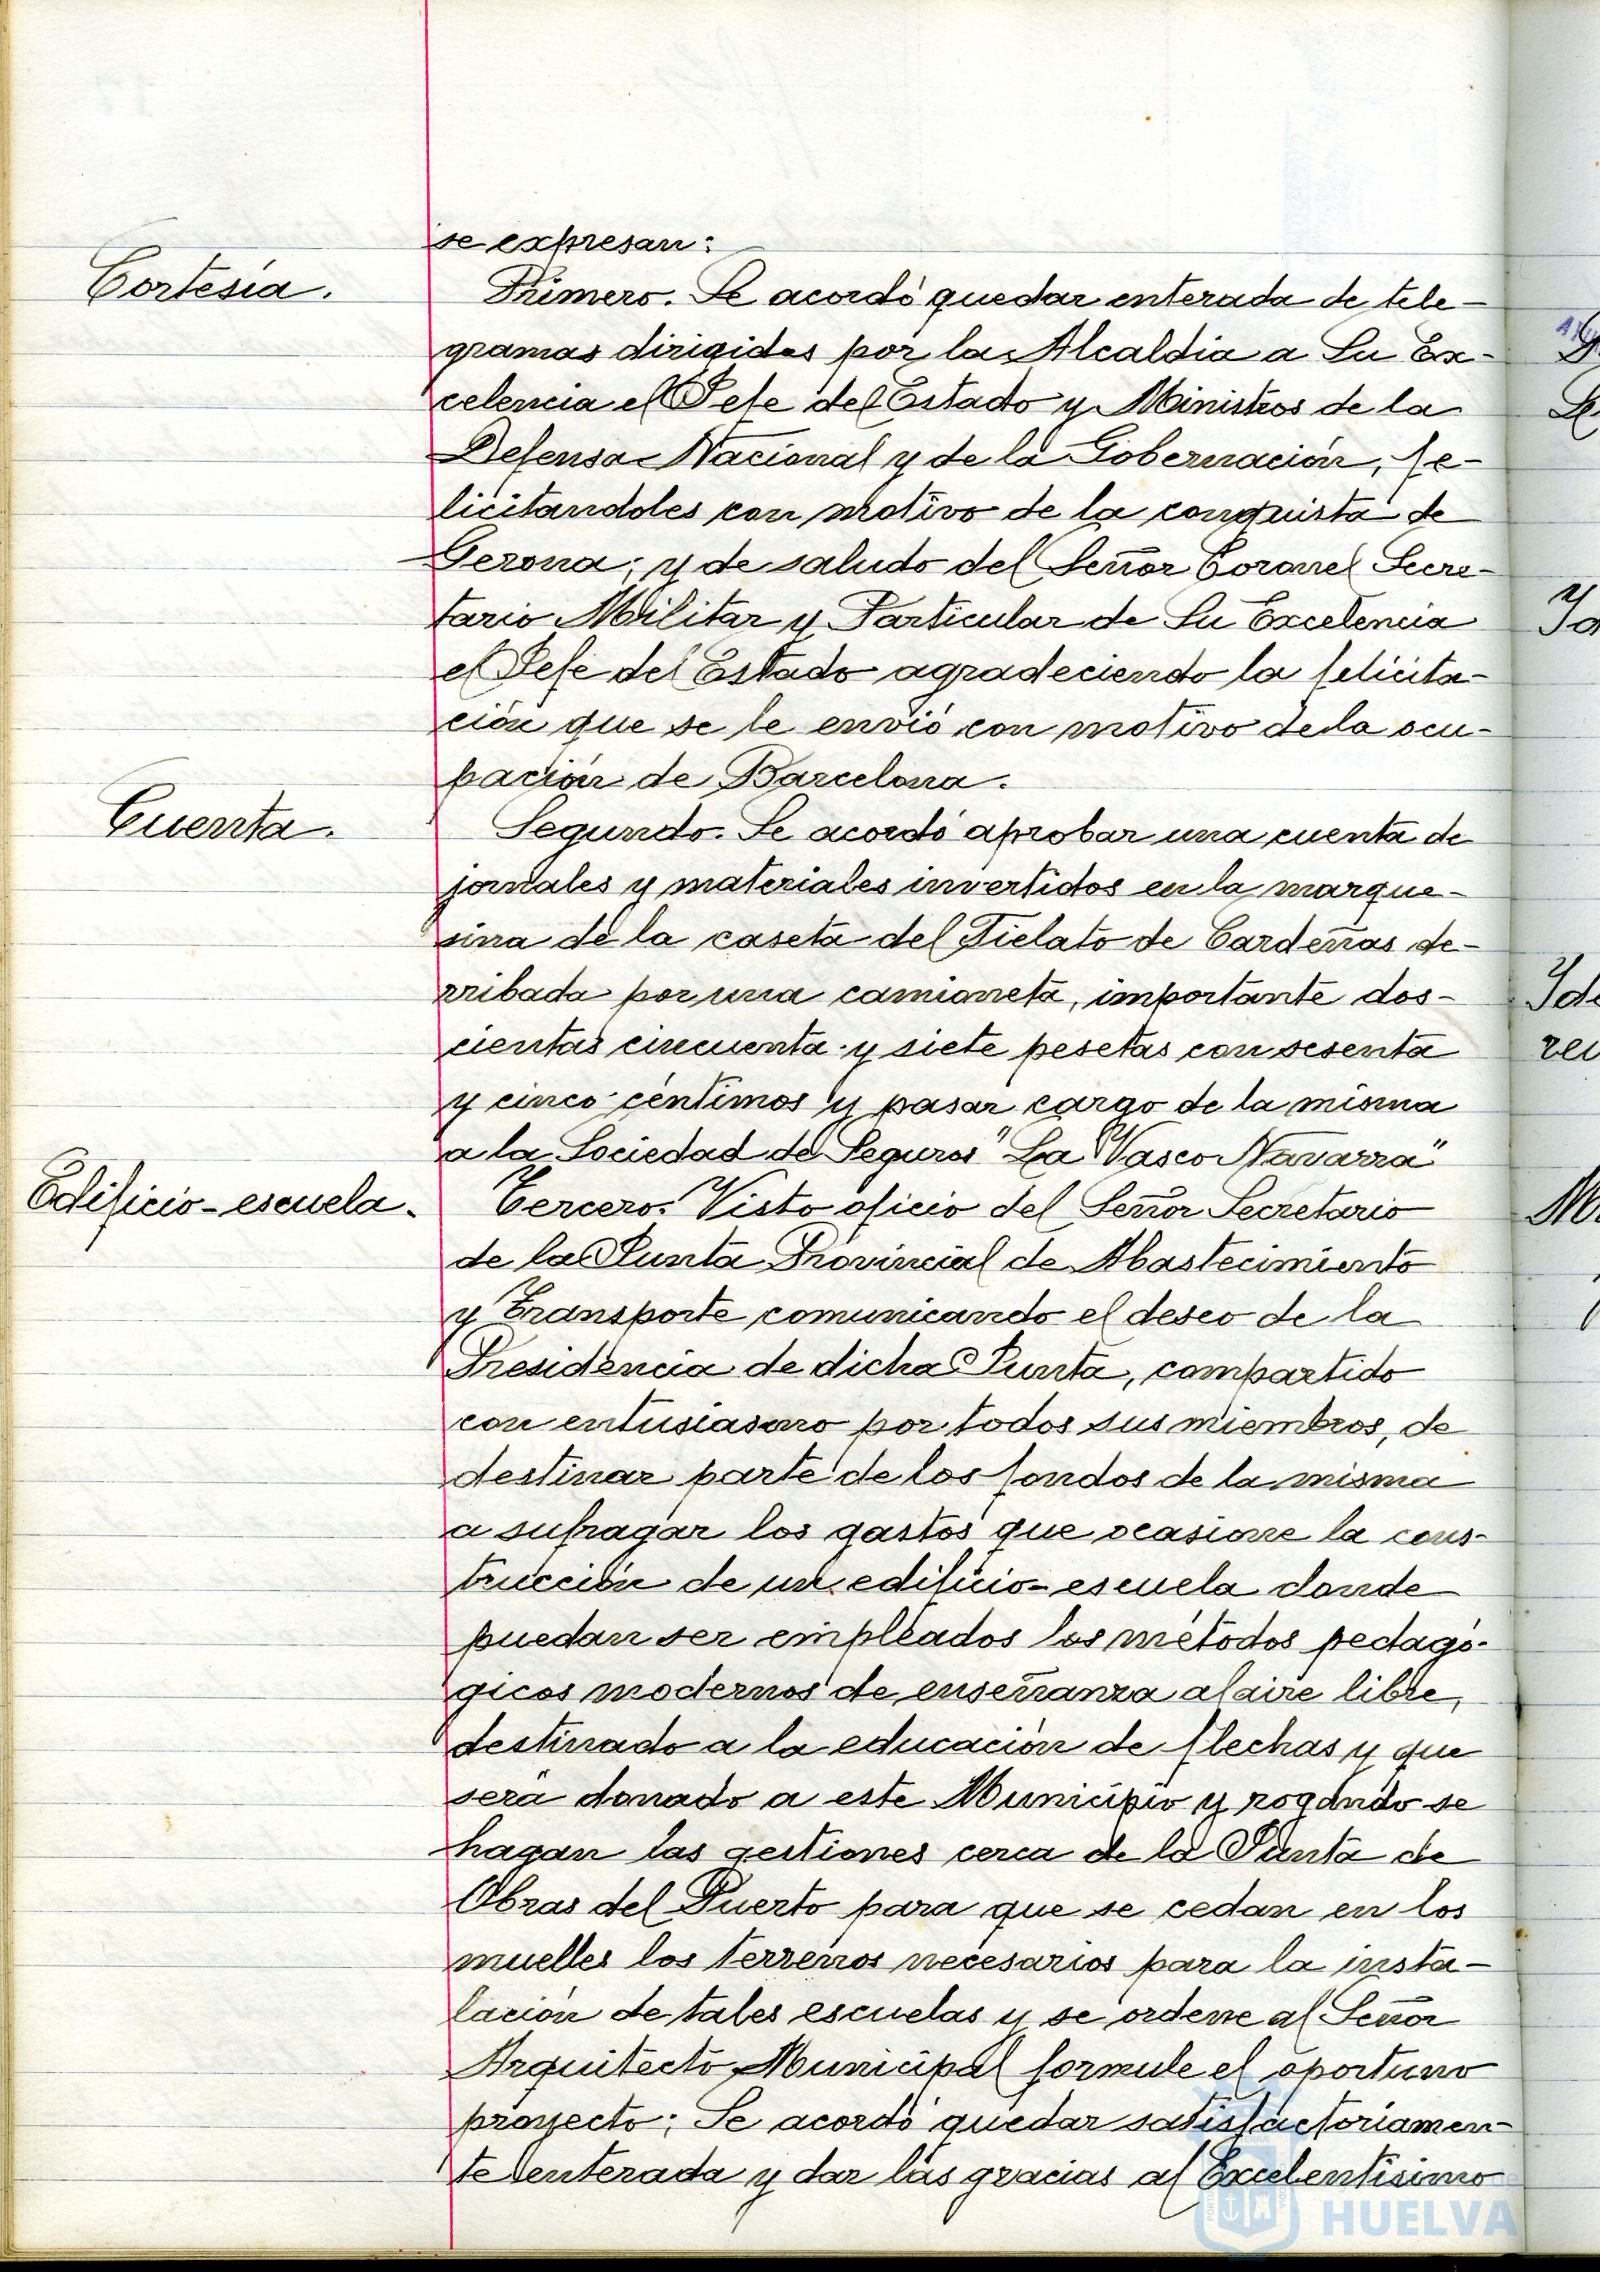 se expresan:
Cortesía.
Primero. Se acordó quedar enterada de tele-
gramas dirigidos por la Alcaldia a Su Ex-
celencia el Jefe del Estado y Ministros de la
Defensa Nacional y de la Gobernación, fe-
licitandoles con motivo de la conquista de
Gerona; y de saludo del Señor Coronel Secre-
tario Militar y Particular de Su Excelencia
el Jefe del Estado agradeciendo la felicita-
ción que se le envió con motivo de la ocu-
pación de Barcelona.
Cuenta.
Segundo. Se acordó aprobar una cuenta de
jornales y materiales invertidos en la marque-
sina de la caseta del Fielato de Cardeñas de-
rribada por una camioneta, importante dos-
cientas cincuenta y siete pesetas con sesenta
y cinco céntimos y pasar cargo de la misma
a la Sociedad de Seguros "La Vasco Navarra"
Edificio-escuela.
Tercero. Visto oficio del Señor Secretario
de la Junta Provincial de Abastecimiento
y Transporte comunicando el deseo de la
Presidencia de dicha Junta, compartido
con entusiasmo por todos sus miembros, de
destinar parte de los fondos de la misma
a sufragar los gastos que ocasione la cons-
trucción de un edificio-escuela donde
puedan ser empleados los métodos pedagó-
gicos modernos de enseñanza al aire libre,
destinado a la educación de flechas y que
será donado a este Municipio y rogando se
hagan las gestiones cerca de la Junta de
Obras del Puerto para que se cedan en los
muelles los terrenos necesarios para la insta-
lación de tales escuelas y se ordene al Señor
Arquitecto Municipal formule el oportuno
proyecto; Se acordó quedar satisfactoriamen-
te enterada y dar las gracias al Excelentísimo
HUELVA